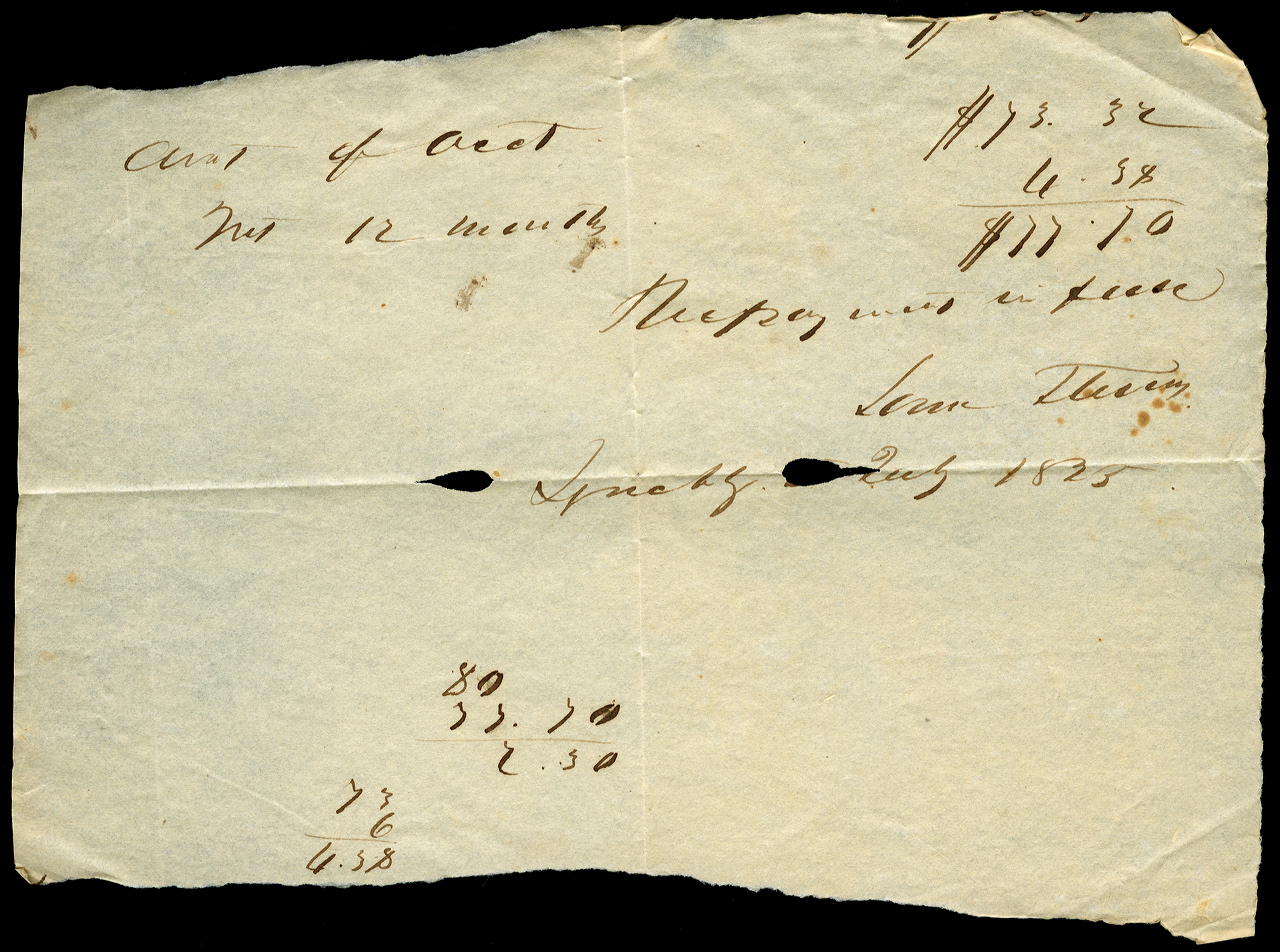 Amt of Acct $73.32
Int 12 months 4.38
$77.70
payment in full
Lynchbg. July 1825
80
77.70
2.30
73
6
4.38